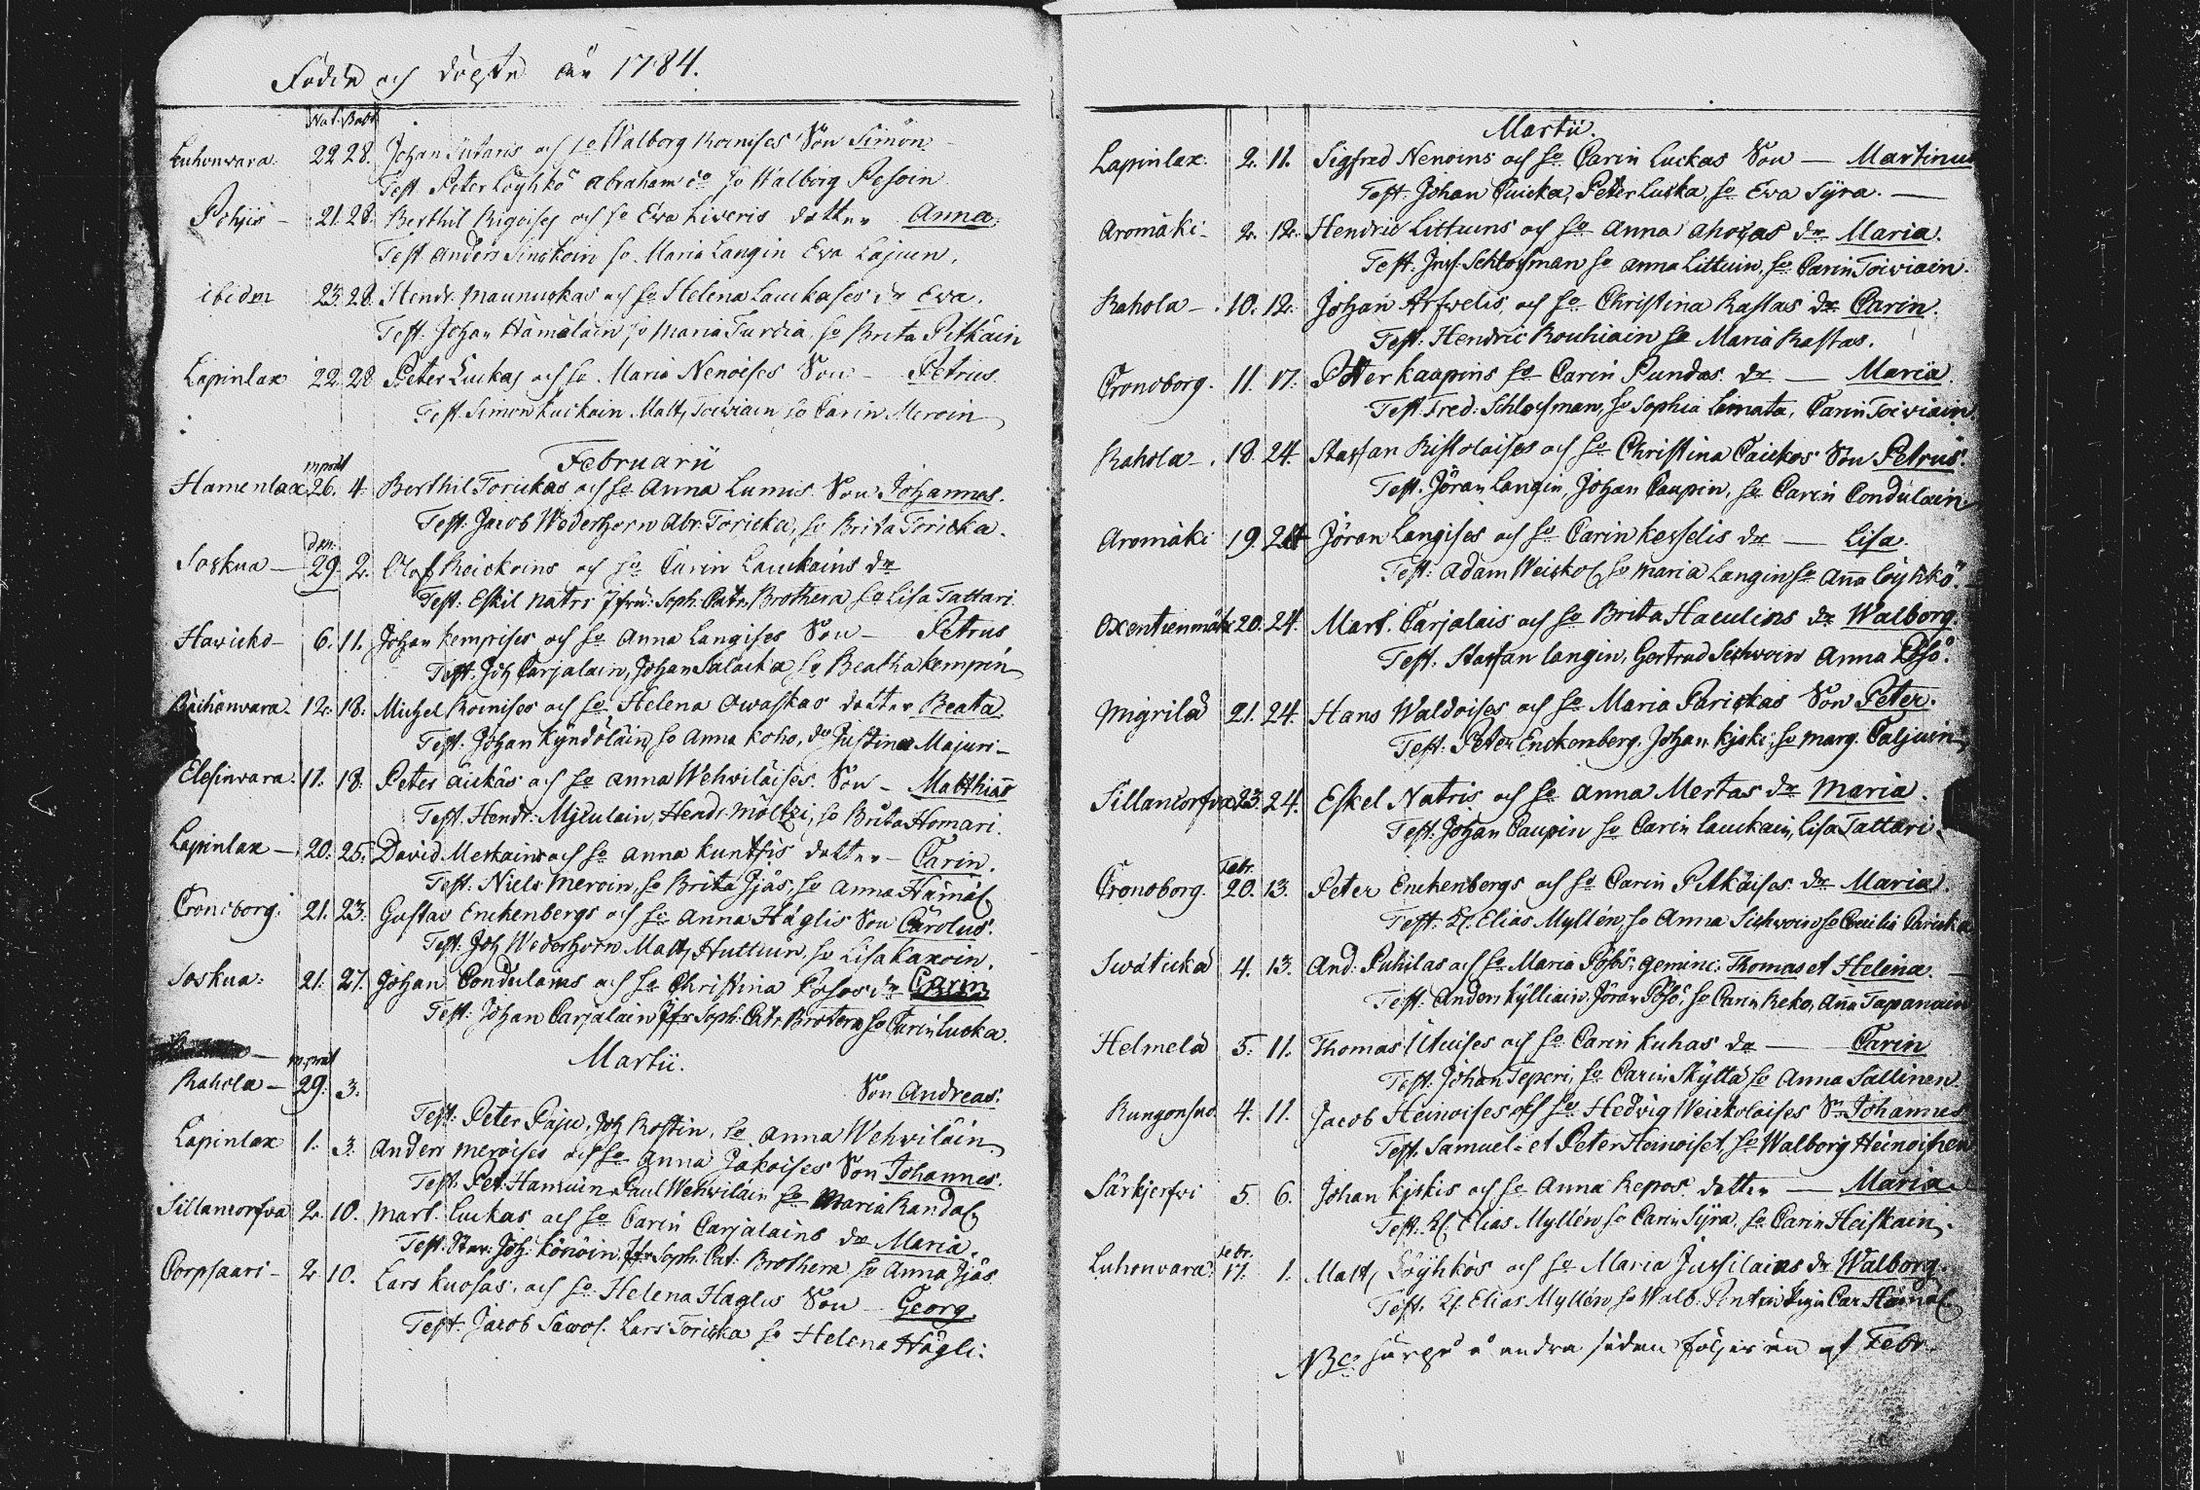 Födde och döpte år 1784.
Nat. Bapt.
Luhonvara. 22 28. Johan och Walborg Roinises Son Simon
Test. Peter Löyhkö Abraham do so Walborg Pesoin
Pohjis 21. 28. Berthil och so Eva Kiveris dotter Anna.
Test. Anders Sinckoin so. Maria Langin Eva Lajuen.
ibidem 23. 28. Hendr. Maunuckas och so Helena Lauckases dr Eva.
Test. Johan Hämäläin so Maria Turcia so Brita Pitkäin
Lapinlax 22 28 Peter Luckas och so. Maria Nenoises Son - Petrus.
Test. Simon Kuckoin. Matts Toiviain so Carin Meroin
Februarii
Hamenlax 26. 4. Berthil Torickas och so Anna Lumis Son Johannes.
Test: Jacob Wederhorn Abr. Toricka, so Brita Toricka.
Soskua 29. 2. Olof Reickoins och so Carin Lauckains dr
Test: Eskil Natri Jfru: Soph. Catr. Brothera so Lisa Tattari.
Havicko 6. 11. Johan Kempises och so Anna Langises Son - Petrus
Test. Joh Carjalain, Johan Salacka so Beatha Kempin
12. 18. Michel Roinises och so Helena Owaskas dotter Beata.
Test. Johan Kyndöläin, so Anna Koho, do Justina Majuri
Elesinvara. 11. 18. Peter Äickäs och so Anna Wehviläises. Son - Matthias
Test. Hendr: Myllulain, Hendr. Möltzi, so Brita Homari.
Lapinlax 20. 25. David Meskains och so Anna Kuntsis dotter - Carin.
Test: Niels Meroin, so Brita Jjäs, so Anna Hämäl
Cronoborg. 21. 23. Gustav Enckenbergs och so Anna Häglis Son Carolus.
Test: Joh Wederhorn Matts Huttuin, so Lisa Kaxoin.
Soskua: 21. 27. Johan Condulains och so Christina Posos dr Carin
Test: Johan Carjalain Jfr Soph: Catr Brotera so Carin Lucka.
Martii.
Rahola 29. 3. Son Andreas.
Test: Peter Paju, Joh Rostin, so Anna Wehviläin
Lapinlax 1. 3. Anders Meroises och so Anna Jakoises Son Johannes.
Test. Pet: Hannuin Paul Wehviläin so Maria Randal
Sillancorfva 2. 10. Mart. Luckas och so Carin Carjalains dr Maria.
Test. Joh. Könöin, Jfr Soph: Cat: Brothera so Anna Jjäs
Corpsaari 2. 10. Lars Kuosas. och so Helena Haglis Son - Georg.
Test: Jacob Savol. Lars Toricka so Helena Hägli.
Martii.
Lapinlax. 2. 11. Sigfred Nenoins och so Carin Luckas Son - Martinus
Test. Johan Cuicka, Peter Lucka, so Eva Syra.
Aromäki 2. 12. Hendric Littuins och so Anna Ahotas dr Maria.
Test: Insp. Schlossman so Anna Littuin, so Carin Toiviain.
Rahola 10. 12. Johan Arfvelis, och so Christina Rastas dr Carin.
Test: Hendric Rouhiain so Maria Rastas.
Cronoborg. 11. 17. Petter Kaupins so Carin Pundas dr - Maria
Test. Fred: Schlossman, so Sophia Limata, Carin Toiviain
Rahola 18. 24. Staffan Ristolaises och so Christina Caickos Son Petrus.
Test. Jöran Langin, Johan Caupin, so Carin Condulain
Aromäki 19. 24 Jöran Langises och so Carin Kesselis dr - Lisa.
Test: Adam Weickol, so Maria Langin so Ana Löyhkö.
20. 24. Mart. Carjalais och so Brita Haculins dr Walborg
Test. Staffan Langin, Gertrud Sichvoin Anna Pösö.
Migrilä 21. 24. Hans Waldoises och so Maria Parickas Son Peter.
Test. Peter Enckenberg, Johan Kjiski, so Marg. Caljuin
Sillancorfva 23. 24. Eskel Natris och so Anna Mertas dr Maria.
Test: Johan Caupin so Carin Lauckain, Lisa Tattari.
Cronoborg. Febr. 20. 13. Peter Enckenbergs och so Carin Pitkäises dr Maria.
Test: Kl. Elias Myllén, so Anna Sichvoin so Cecilia Paricka
Swäticka 4. 13. And: Puhilas och so Maria Pösös, gemini: Thomas et Helena.
Test. Anders Kylliain. Jöran Pösö, so Carin Reko, Ana Tapanain
Helmelä 5. 11. Thomas och so Carin Kuhas dr - Carin
Test: Johan Teperi, so Carin Skyttä so Anna Sallinen.
Kungonsuo 4. 11. Jacob Heinoises och so Hedvig Weickolaises Sn Johannes
Test. Samuel et Peter Heinoiset, so Walborg Heinoinen
Särkjerfvi 5. 6. Johan Kjiskis och so Anna Repos dotter - Maria.
Test. Kl. Elias Myllén so Carin Syra, so Carin Heiskain.
Luhonvara. Febr. 17. 1. Matts Löyhkös och so Maria Jussilains dr Walborg.
Test. Kl. Elias Myllén so Walb: Car Hämäl.
NB. härpå å andra sidan följer en af Febr.